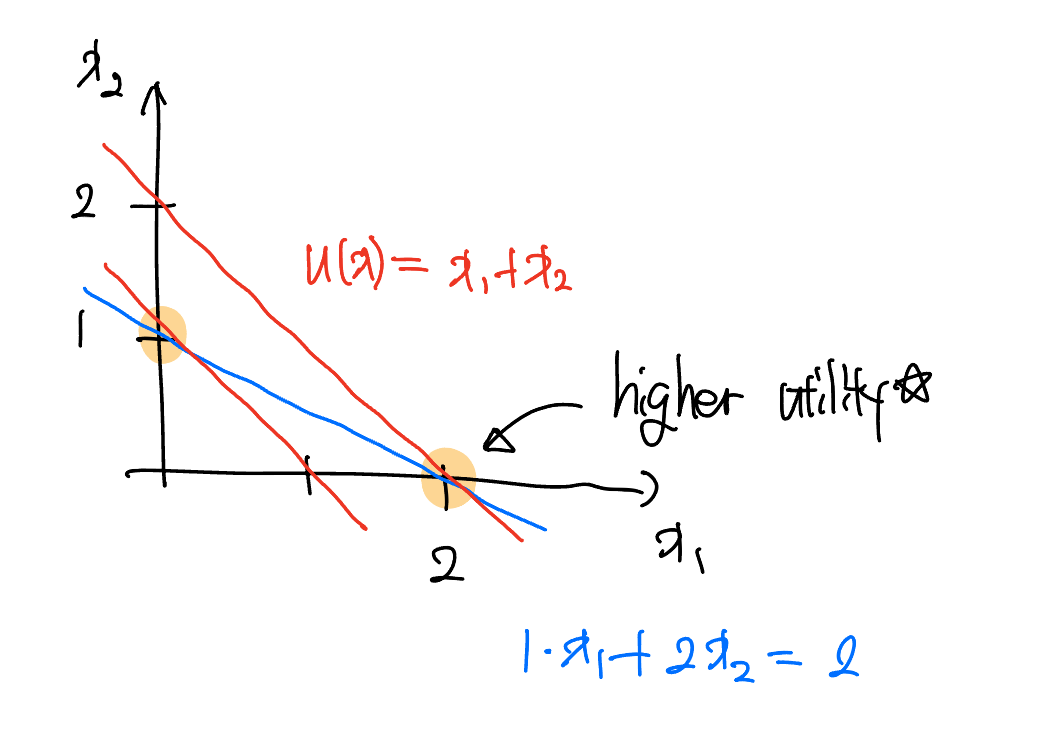 x₂
2
u(x) = x₁+x₂
1
higher utility☆
2
x₁
1·x₁+2x₂ = 2